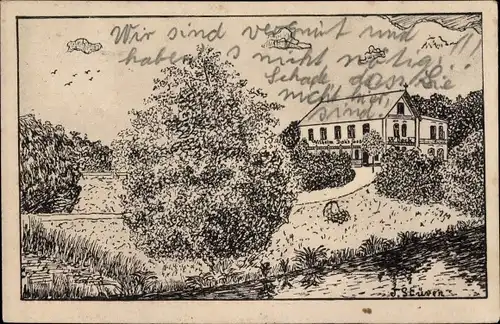 Wir sind vergnügt und
haben's nicht nötig!!!
Schade dass Sie
nicht hier
sind.
Wilhelm